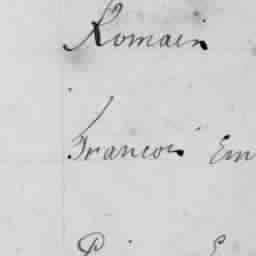 Romain
Francois Em